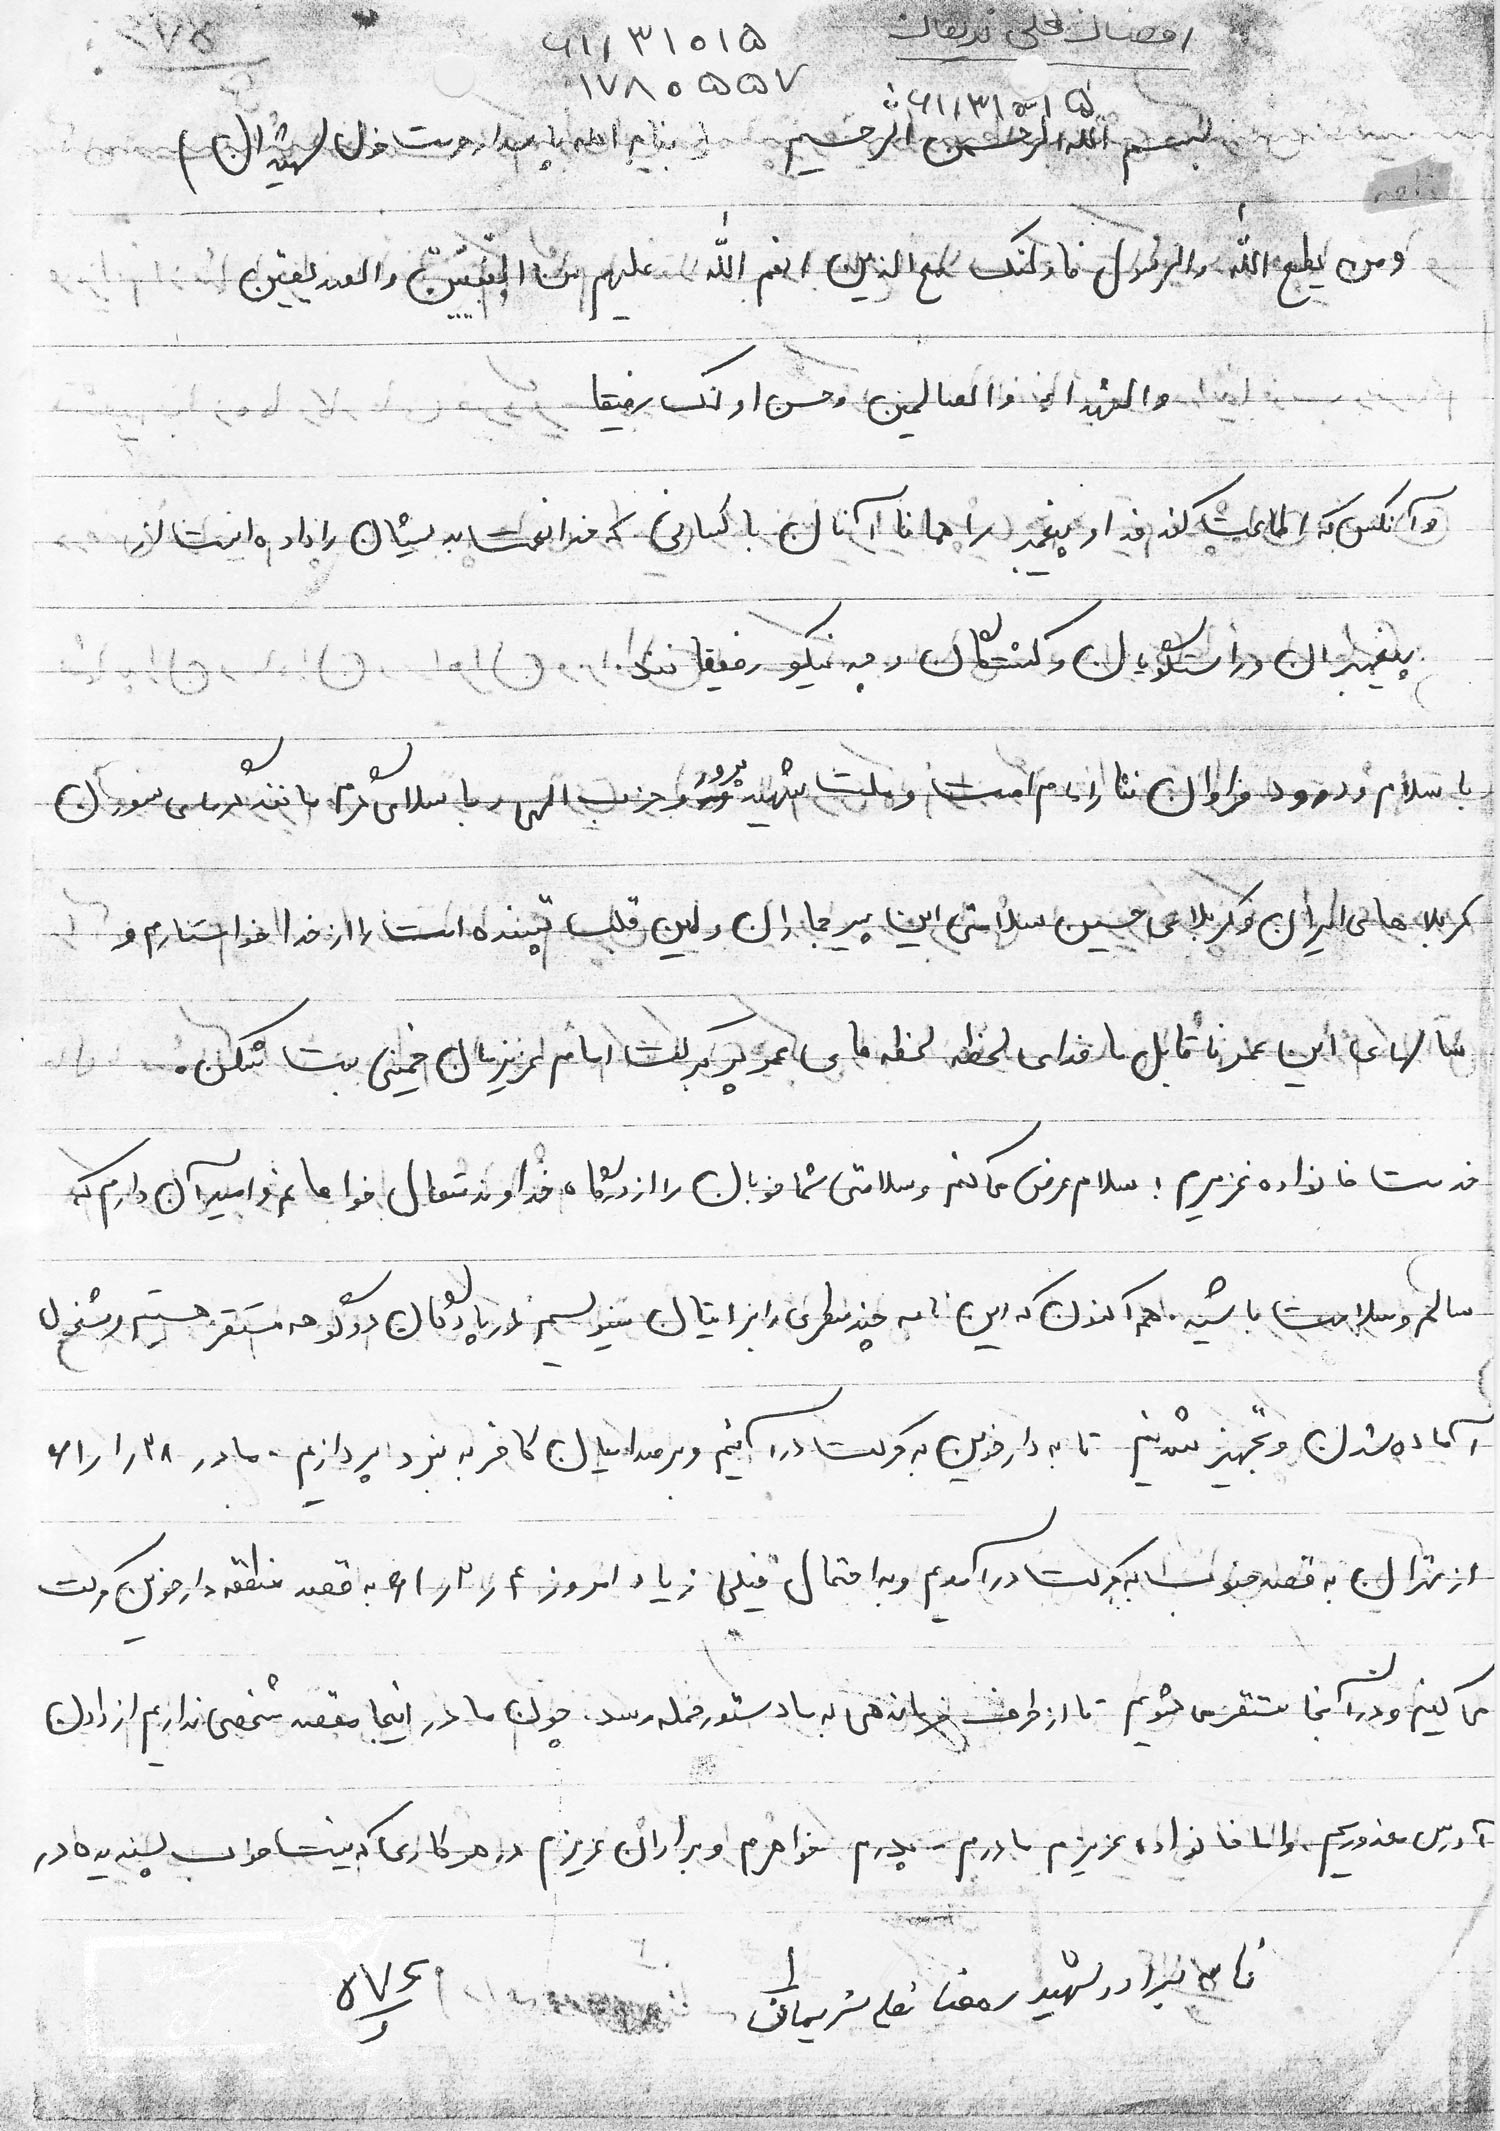 رمضان علی نریمان
۶۱/۳۱۰۱۵
۱۷۸۰۵۵۷
۶۱/۳۱۰۱۵
بسم الله الرحمن الرحیم (بنام الله پاسدار حرمت خون شهیدان)
نامه
ومن یطع الله والرسول فاولئک مع الذین انعم الله علیهم من النبیّین والصدیقین
والشهداء والصالحین وحسن اولئک رفیقا
وآنکس که اطاعت کند خدا و پیغمبر را همانا آنان با کسانی که خدا نعمت بدیشان را داده است از
پیغمبران و راستگویان و کشتگان و چه نیکو رفیقانند.
با سلام و درود فراوان نثار امام امت و ملت شهید پرور و حزب الهی و با سلامی گرم مانند گرمای سوزان
کربلاهای ایران و کربلای حسین سلامتی این پیر جماران و این قلب تپنده امت را از خدا خواستارم و
سالهای این عمر ناقابل ما فدای لحظه لحظه های عمر پر برکت امام عزیزمان خمینی بت شکن.
خدمت خانواده عزیزم؛ سلام عرض می کنم و سلامتی شما خوبان را از درگاه خداوند متعال خواهانم و امید آن دارم که
سالم و سلامت باشید. هم اکنون که این نامه چند سطری را برایتان مینویسم در پادگان دوکوهه مستقر هستیم و مشغول
آماده شدن و تجهیز شدنیم تا به دارخوین به حرکت در آئیم و بر صدامیان کافر به نبرد بپردازیم. ما در ۶۱/۱/۲۸
از تهران به قصد جنوب به حرکت در آمدیم و به احتمال خیلی زیاد امروز ۶۱/۲/۴ به قصد منطقه دارخوین حرکت
می کنیم و در آنجا مستقر می شویم تا از طرف فرماندهی به ما دستور حمله رسد. چون ما در اینجا مقصد شخصی نداریم از دادن
آدرس معذوریم. واما خانواده عزیزم مادرم - پدرم خواهرم و برادران عزیزم در هر کاری که نیت صواب پسندیده در
نامه برادر شهید رمضانعلی نریمانی
۱
۵۷۶